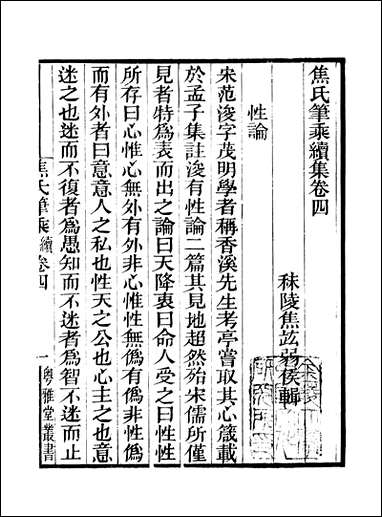 焦氏筆乘續集卷四
秣陵焦竑弱侯輯
性論
宋范浚字茂明學者稱香溪先生考亭嘗取其心箴載
於孟子集註浚有性論二篇其見地超然殆宋儒所僅
見者特爲表而出之論曰天降衷曰命人受之曰性性
所存曰心惟心無外有外非心惟性無僞有僞非性僞
而有外者曰意意人之私也性天之公也心主之也意
迷之也迷而不復者爲愚知而不迷者爲智不迷而止
焦氏筆乘續卷四
一
粵雅堂叢書